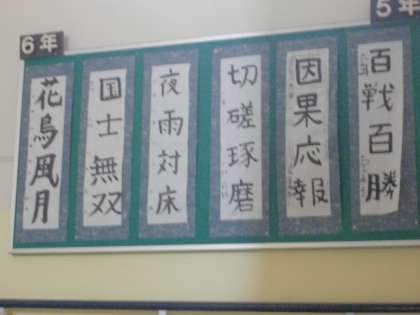 6年
5年
百戦百勝
因果応報
切磋琢磨
夜雨対床
国士無双
花鳥風月